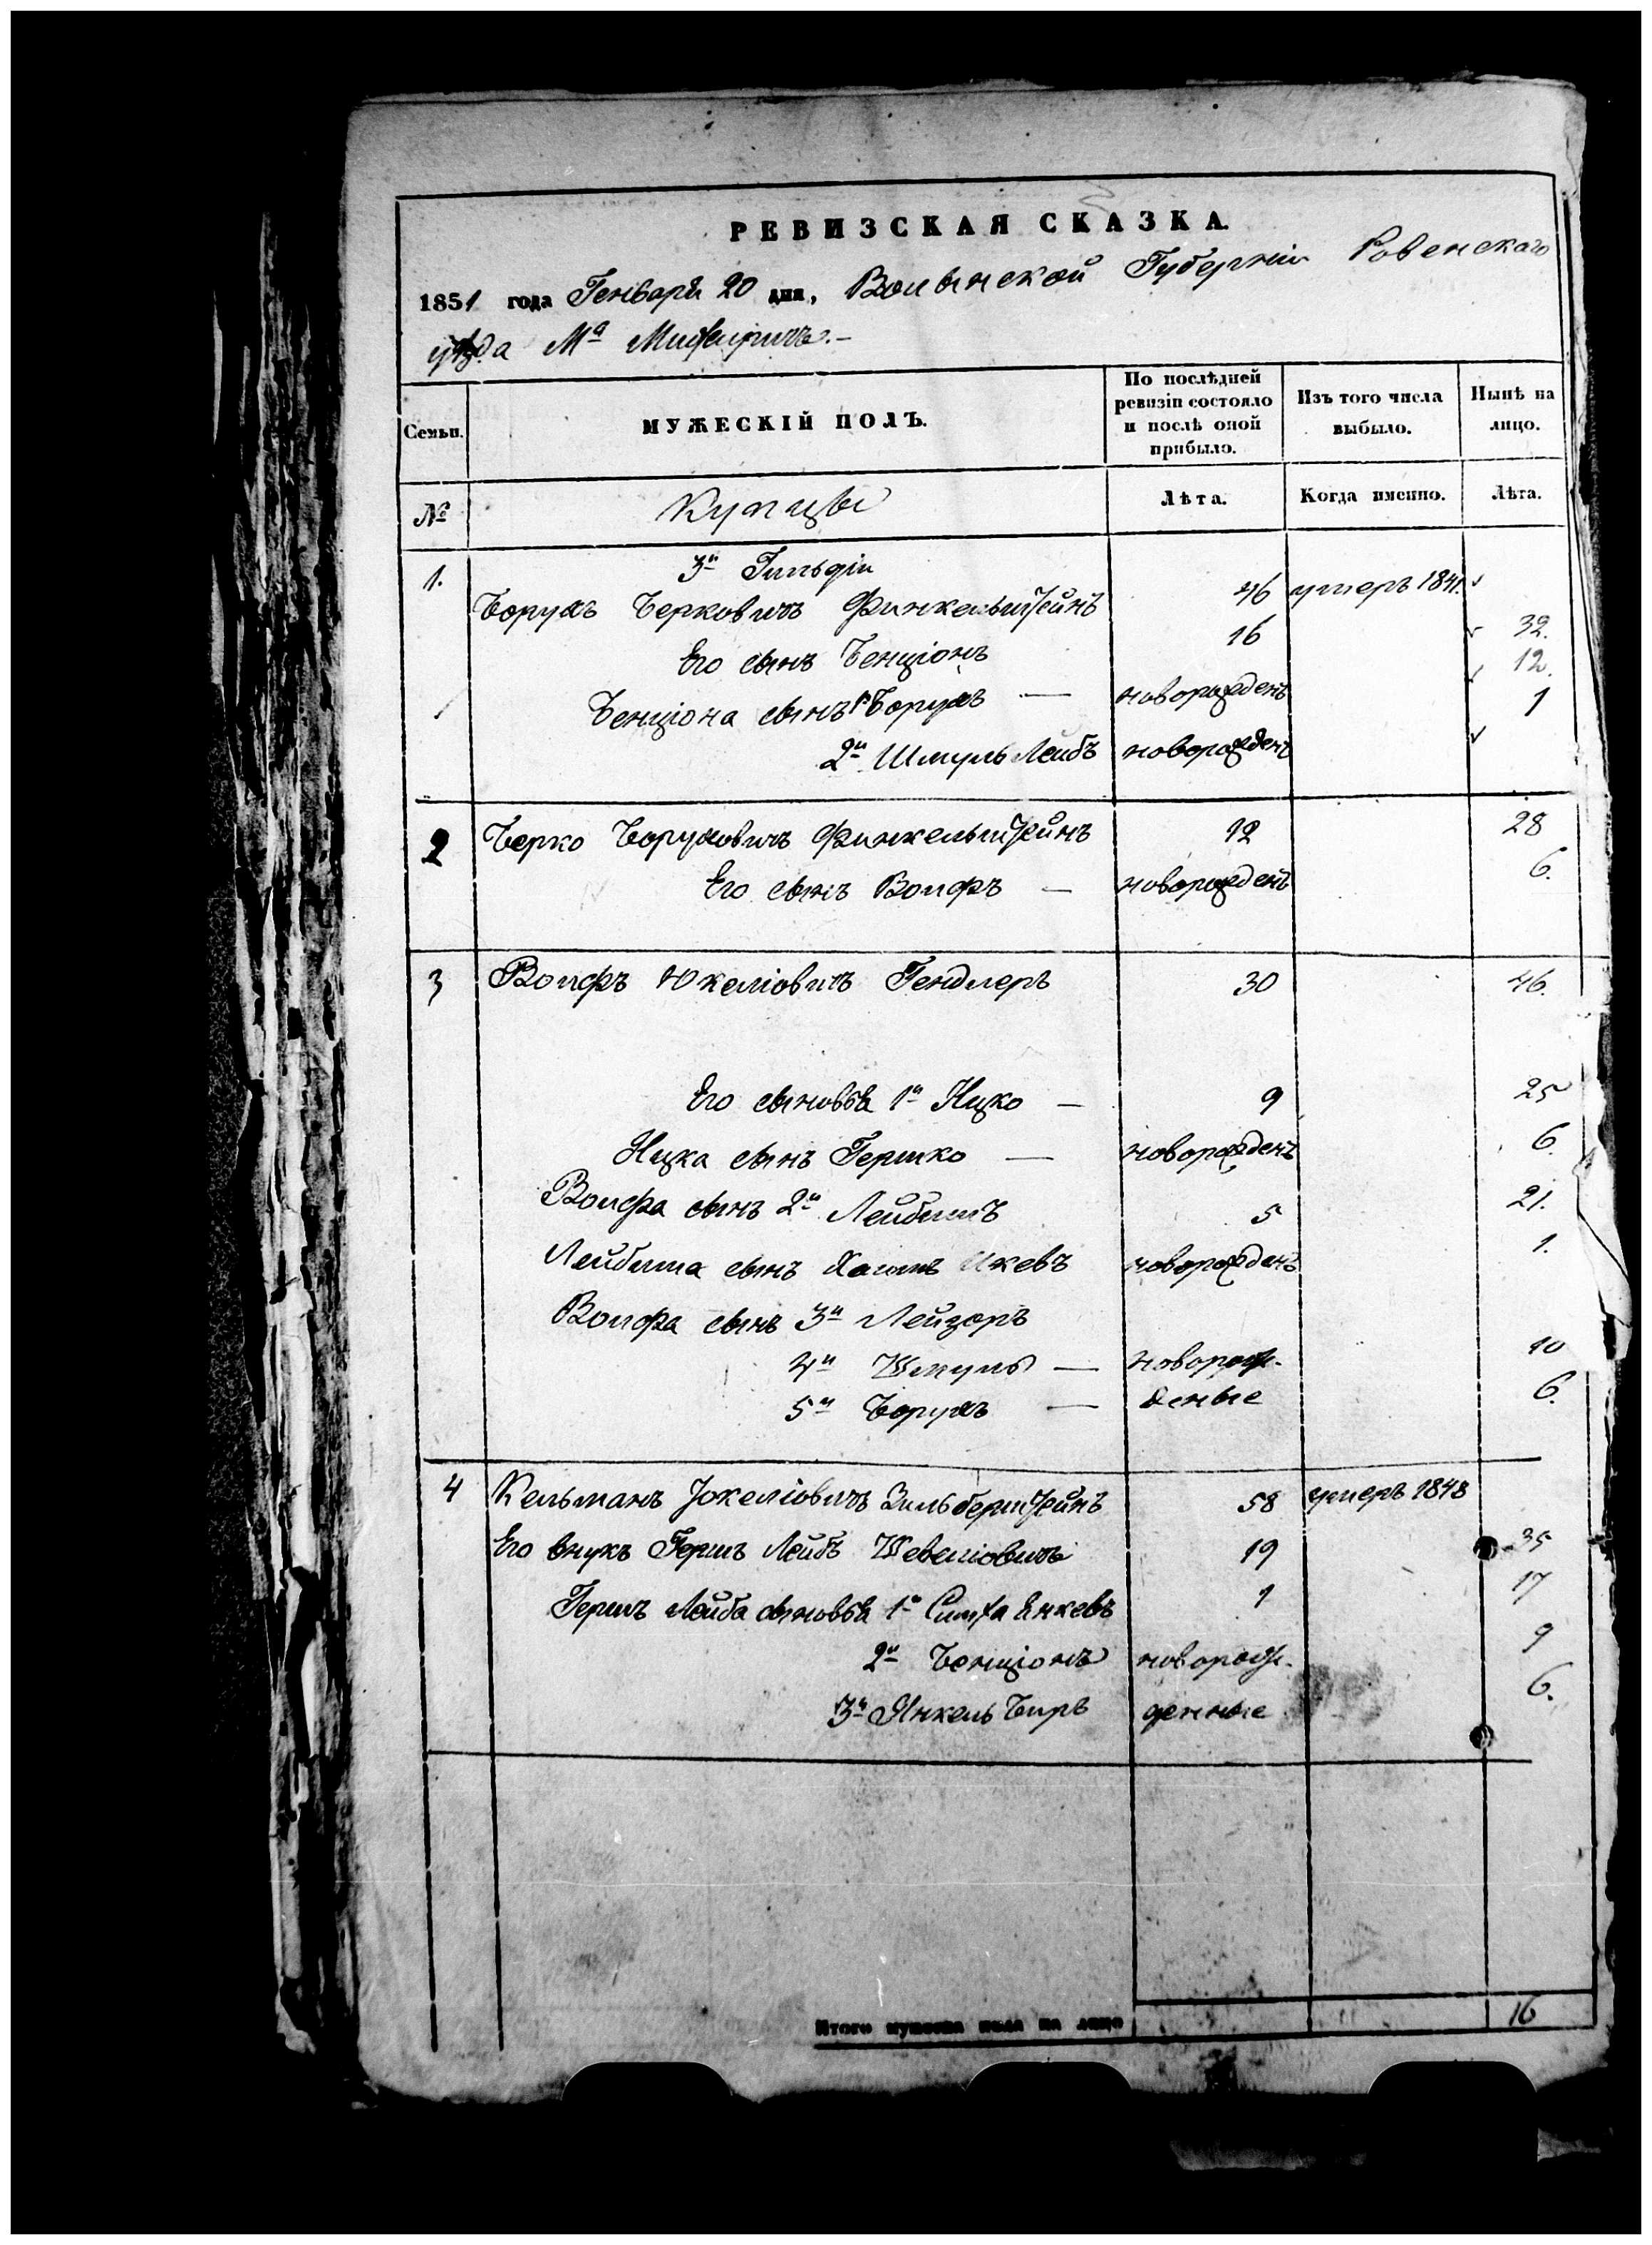 РЕВИЗСКАЯ СКАЗКА.
1851 года Генваря 20 дня, Волынской Губерніи Ровенскаго
уѣзда Мª
Семьи.
МУЖЕСКІЙ ПОЛЪ.
По послѣдней ревизіи состояло и послѣ оной прибыло.
Изъ того числа выбыло.
Нынѣ на лицо.
№ Купцы Лѣта. Когда именно. Лѣта.
1. 3й Гильдіи
Борухъ Берковичъ Финкельштейнъ 46 умеръ 1841.
Его сынъ Бенціонъ 16 32.
Бенціона сынъ 1й Борухъ — новорожденъ 12.
2й Шмуль Лейбъ новорожденъ 1
2 Берко Боруховичъ Финкельштейнъ 12 28
Его сынъ Вольфъ — новорожденъ 6.
3 Вольфъ Юкеліовичъ Гендлеръ 30 46.
Его сыновья 1й Ицко — 9 25
Ицка сынъ Гершко — новорожденъ 6.
Вольфа сынъ 2й Лейбишъ 5 21.
Лейбиша сынъ новорожденъ 1.
Вольфа сынъ 3й Лейзоръ
4й Шмуль — новорож- 10
5й Борухъ — деные 6.
4 Кельманъ Іокеліовичъ Зильберштейнъ 58 умеръ 1848
Его внукъ Гершъ Лейбъ Шевеліовичъ 19 35
Гершъ Лейба сыновья 1й Симха Янкевъ 1 17
2й Бенціонъ новорож- 9
3й Янкель Беръ денные 6.
Итого мужеска пола на лицо 16